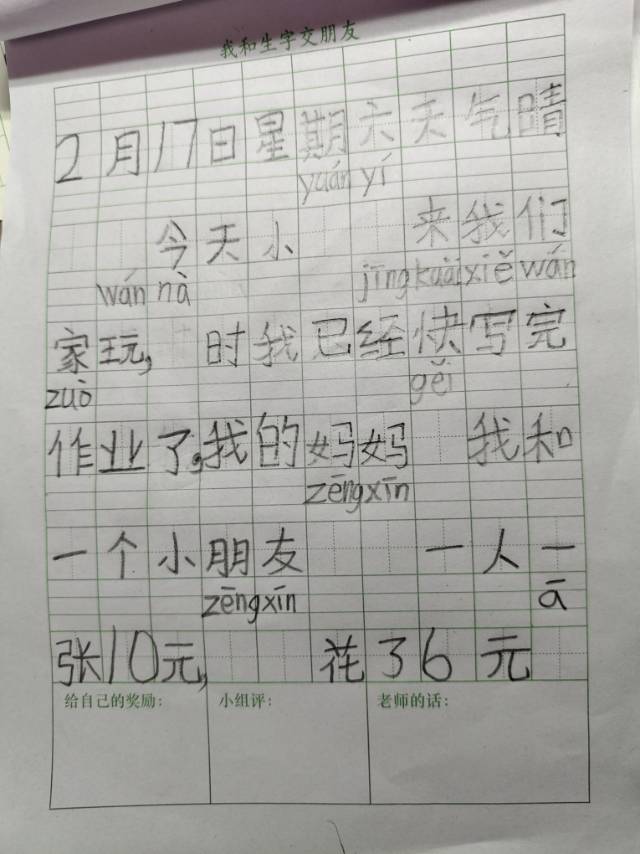 我和生字交朋友
2月17日星期六天气晴
yuán yí
今天小 来我们
wán nà jīng kuài xiě wán
家玩, 时我已经快写完
zuò gěi
作业了,我的妈妈 我和
zēng xīn
一个小朋友 一人一
zēng xīn ā
张10元, 花36元
给自己的奖励: 小组评: 老师的话: